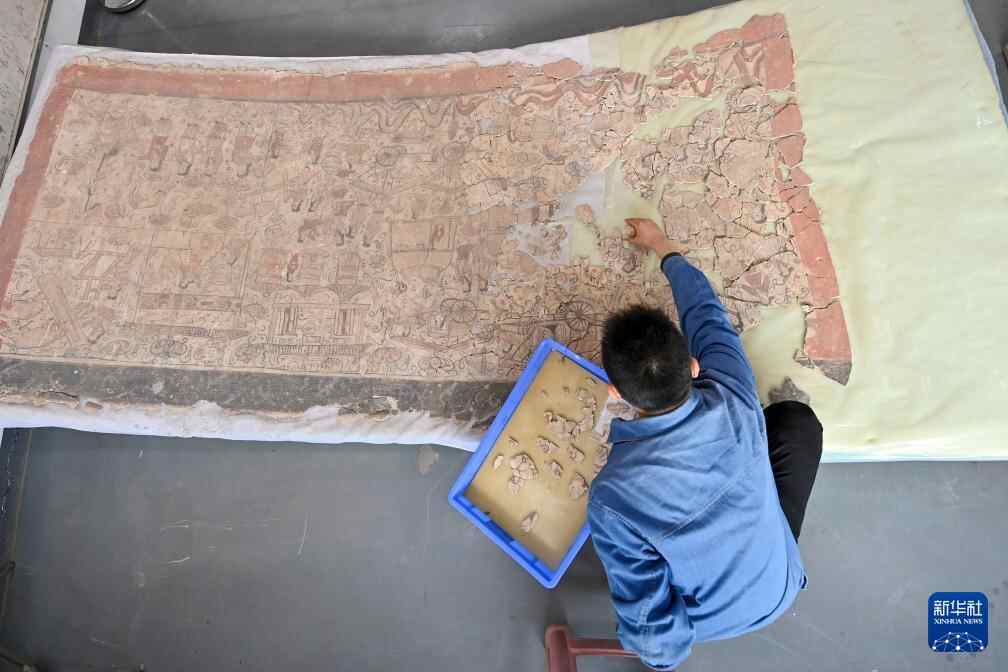 新华社
XINHUA NEWS